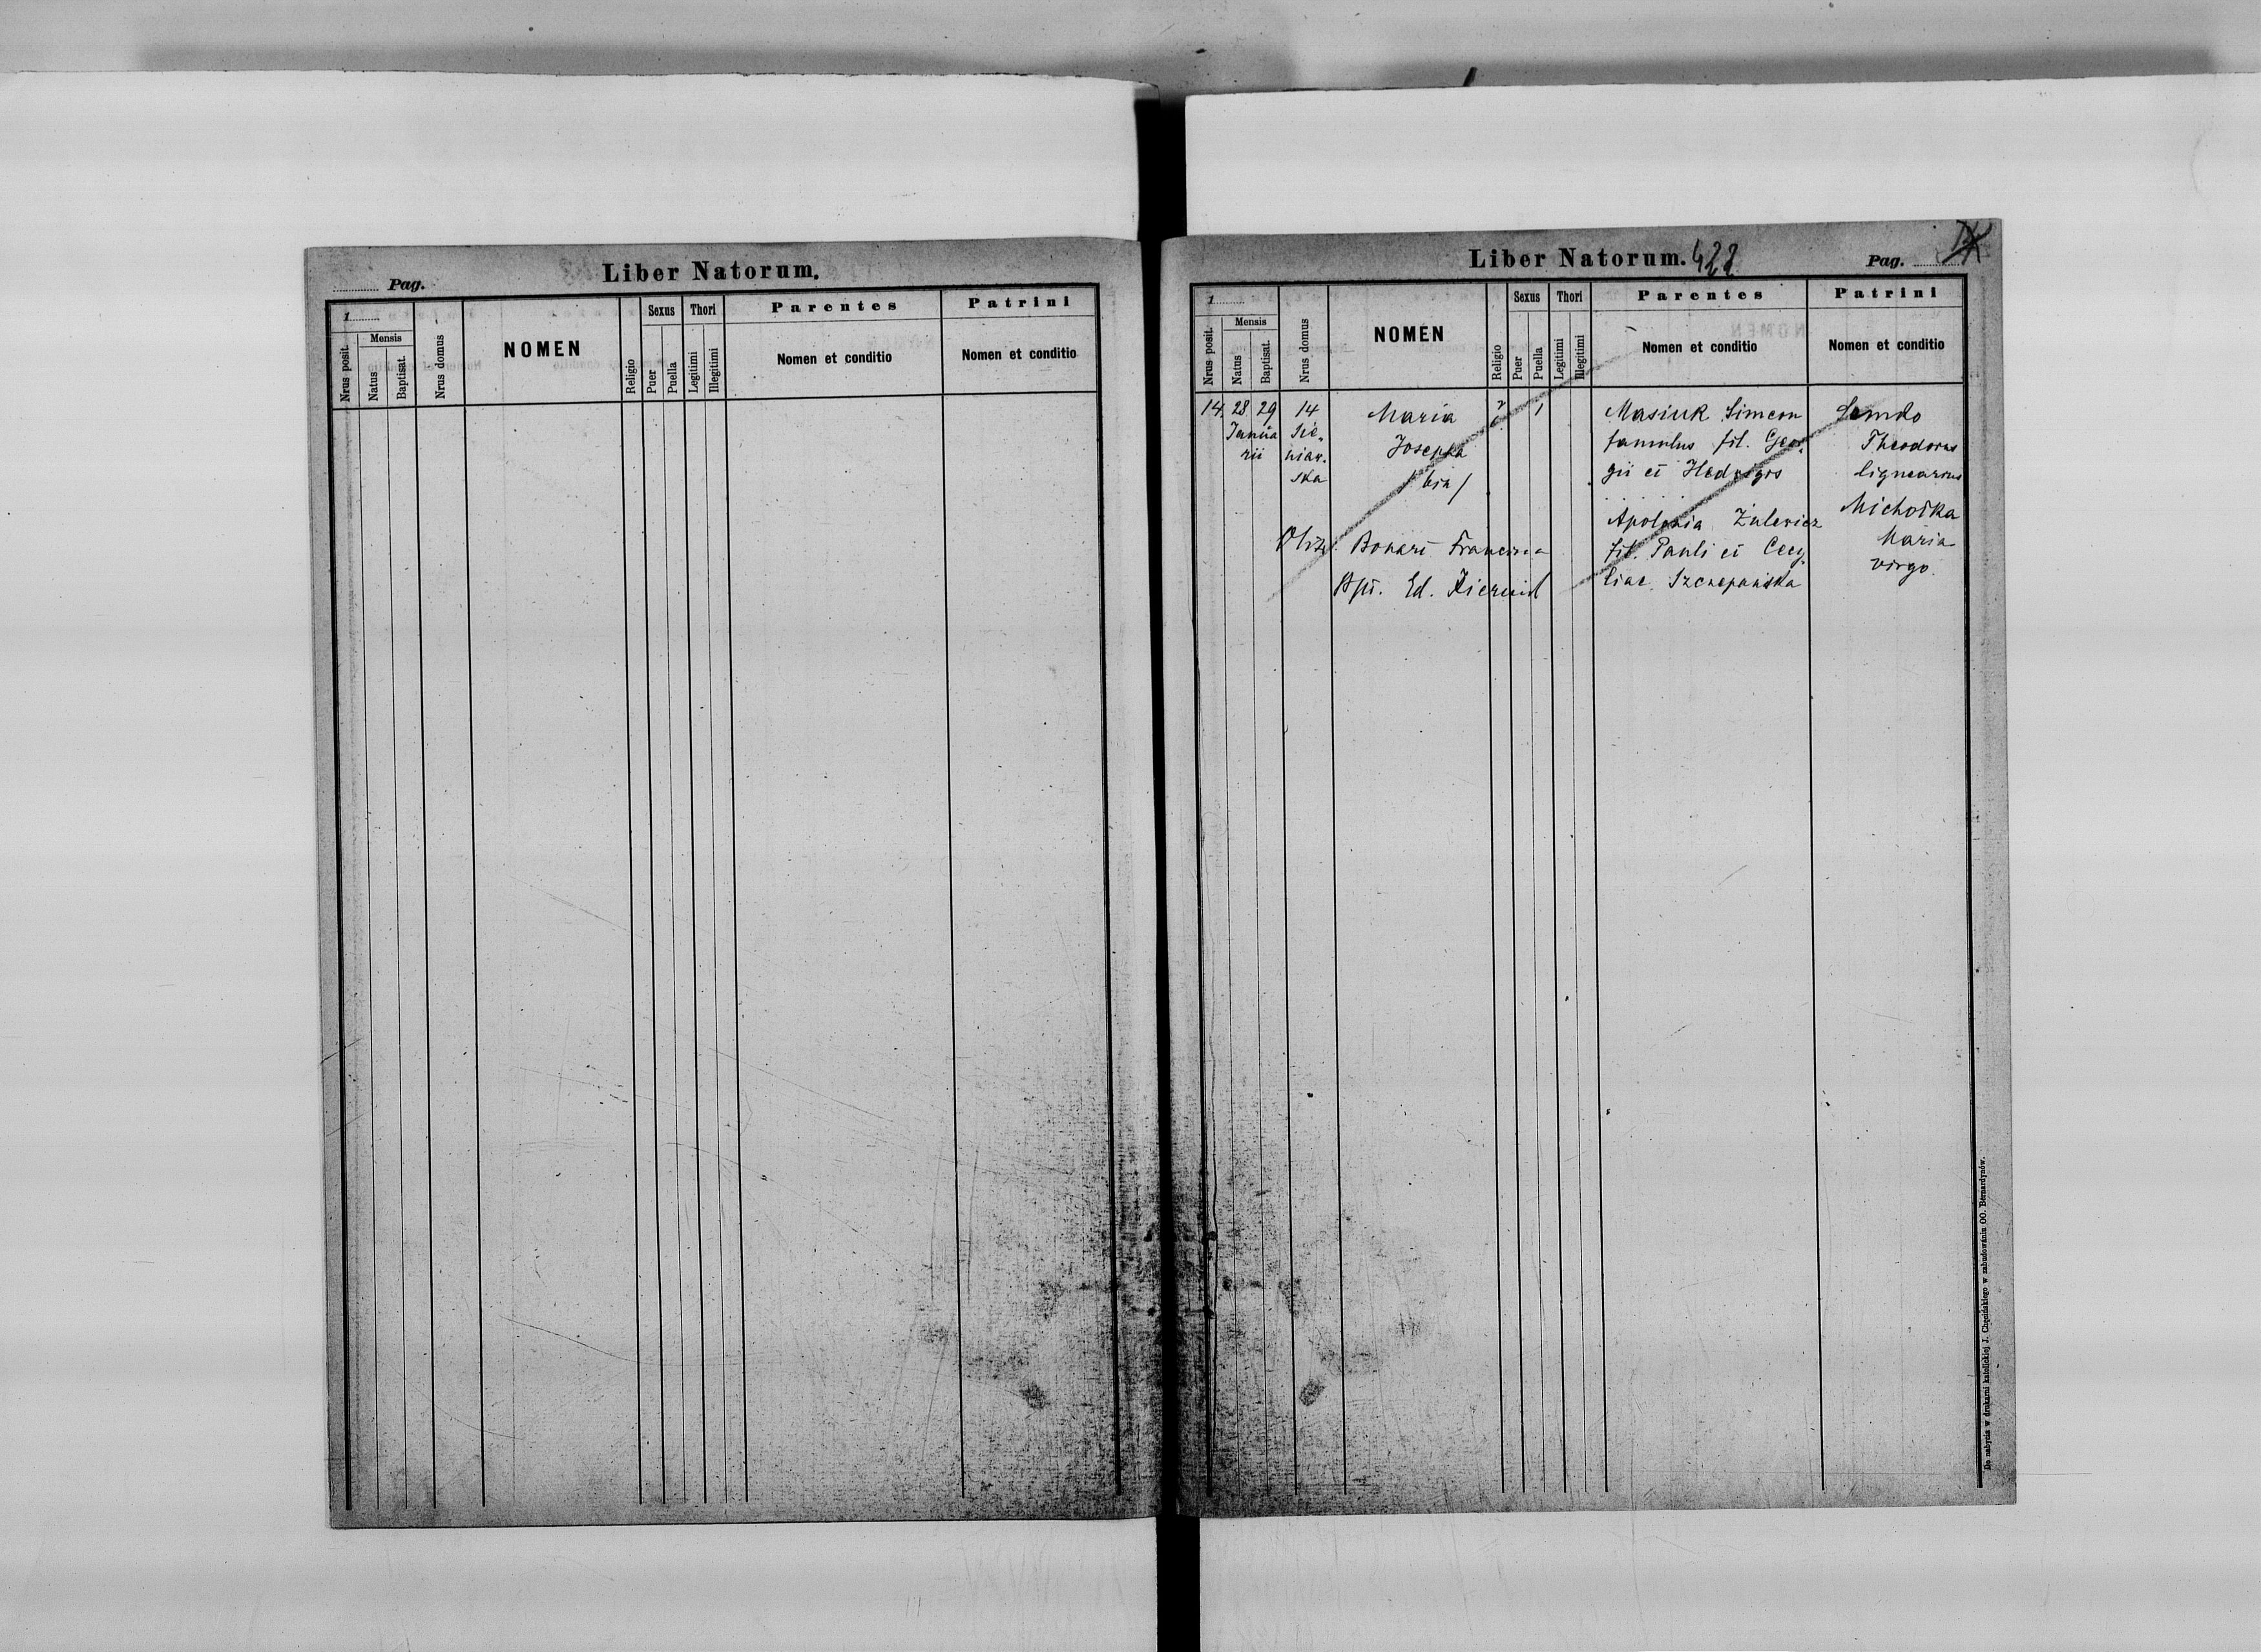 Pag.
Liber Natorum.
1
Nrus posit.
Mensis
Natus
Baptisat.
Nrus domus
NOMEN
Religio
Sexus
Puer
Puella
Thori
Legitimi
Illegitimi
Parentes
Nomen et conditio
Patrini
Nomen et conditio
Liber Natorum. 422
Pag.
1
Nrus posit.
Mensis
Natus
Baptisat.
Nrus domus
NOMEN
Religio
Sexus
Puer
Puella
Thori
Legitimi
Illegitimi
Parentes
Nomen et conditio
Patrini
Nomen et conditio
14. 28 29
Janua
rii
14
Sie-
niaw-
ska
Maria
Josepha
/ bin /
r. c.
1
Masiuk Simeon
famulus fil. Geor-
gii et Hedvigis
Apolonia Zulewicz
fil. Pauli et Cecy-
liae Szczepańska
Theodorus
lignearius
Michotka
Maria
virgo.
Obstr. Bonart Francisca
Bpt. Ed.
Do nabycia w drukarni katolickiej J. Chęcińskiego w zabudowaniu OO. Bernardynów.